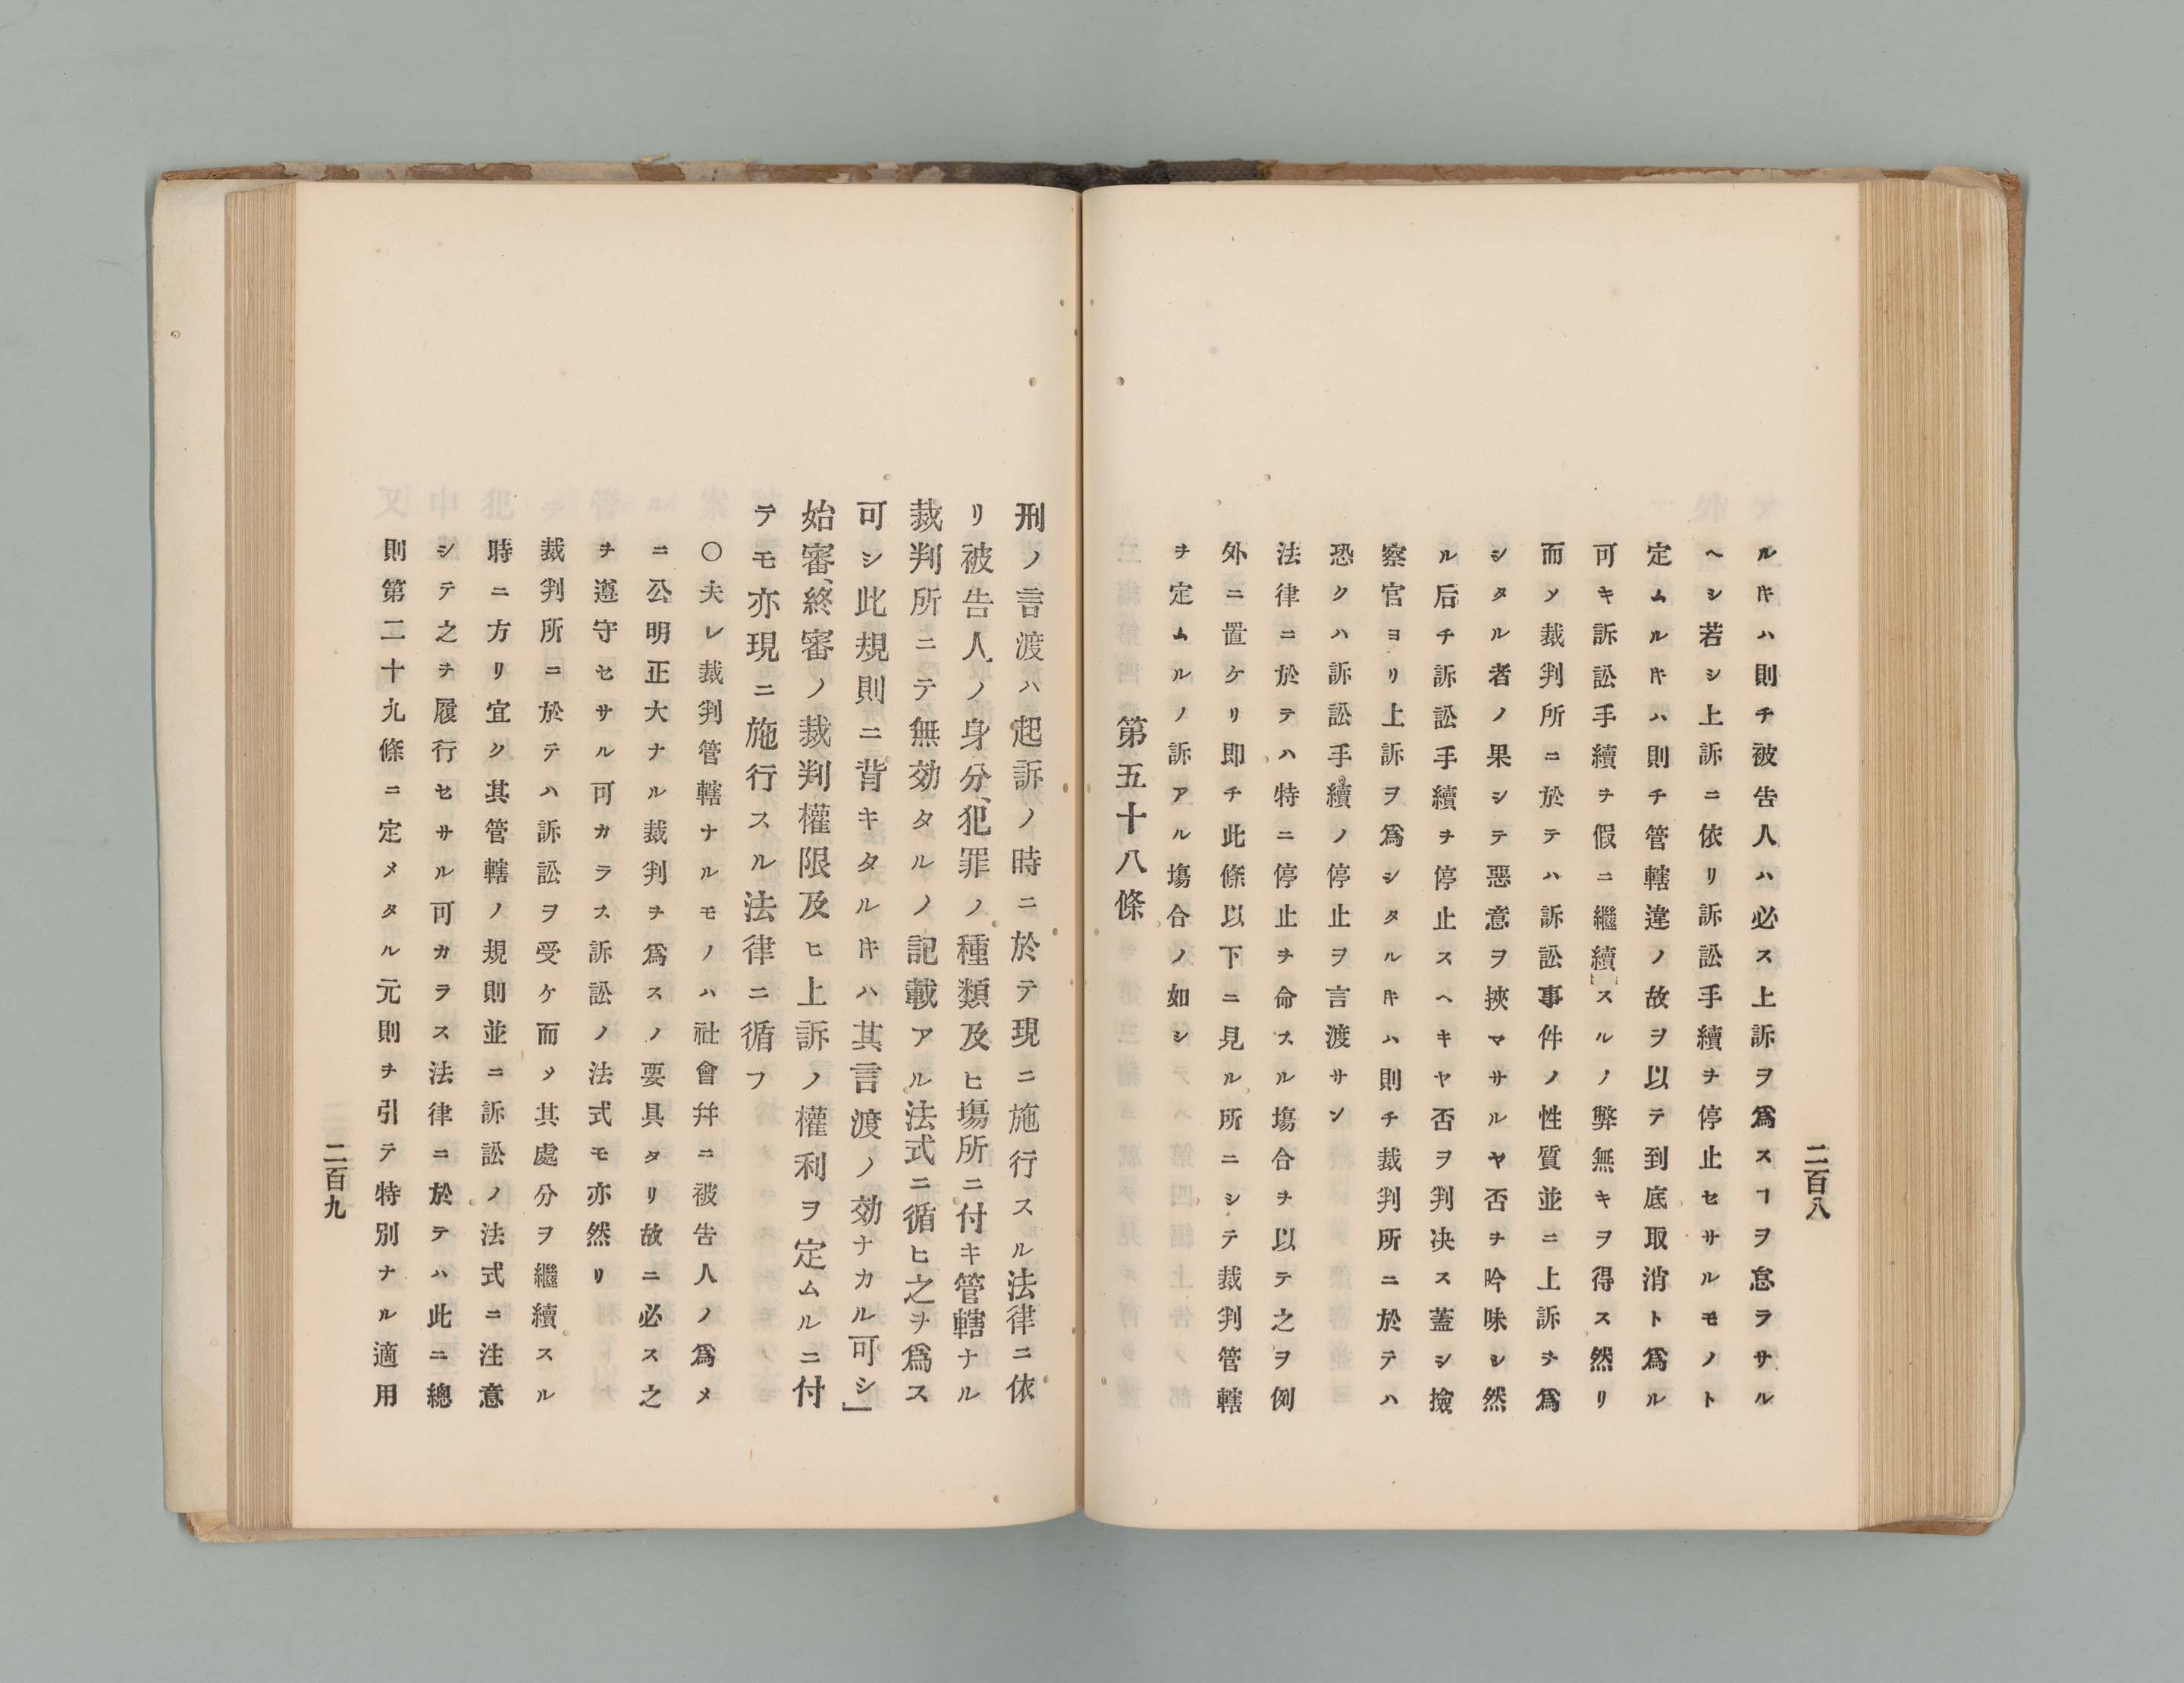 二百八
ルキハ則チ被告人ハ必ス上訴ヲ爲スヿヲ怠ラサル
ヘシ若シ上訴ニ依リ訴訟手續チ停止セサルモノト
定ムルキハ則チ管轄違ノ故ヲ以テ到底取消ト爲ル
可キ訴訟手續ヲ假ニ繼續スルノ弊無キヲ得ス然リ
而ソ裁判所ニ於テハ訴訟事件ノ性質並ニ上訴チ爲
シタル者ノ果シテ惡意ヲ挾マサルヤ否チ吟味シ然
ル后チ訴訟手續ヲ停止スヘキヤ否ヲ判决ス蓋シ撿
察官ヨリ上訴ヲ爲シタルキハ則チ裁判所ニ於テハ
恐クハ訴訟手續ノ停止ヲ言渡サン
法律ニ於テハ特ニ停止チ命スル塲合チ以テ之ヲ例
外ニ置ケリ即チ此條以下ニ見ル所ニシテ裁判管轄
ヲ定ムルノ訴アル塲合ノ如シ
第五十八條
刑ノ言渡ハ起訴ノ時ニ於テ現ニ施行スル法律ニ依
リ被告人ノ身分、犯罪ノ種類及ヒ塲所ニ付キ管轄ナル
裁判所ニテ無効タルノ記載アル法式ニ循ヒ之ヲ爲ス
可シ此規則ニ背キタルキハ其言渡ノ効ナカル可シ」
始審、終審ノ裁判權限及ヒ上訴ノ權利ヲ定ムルニ付
テモ亦現ニ施行スル法律ニ循フ
○夫レ裁判管轄ナルモノハ社會幷ニ被告人ノ爲メ
ニ公明正大ナル裁判チ爲スノ要具タリ故ニ必ス之
チ遵守セサル可カラス訴訟ノ法式モ亦然リ
裁判所ニ於テハ訴訟ヲ受ケ而メ其處分ヲ繼續スル
時ニ方リ宜ク其管轄ノ規則並ニ訴訟ノ法式ニ注意
シテ之チ履行セサル可カラス法律ニ於テハ此ニ總
則第二十九條ニ定メタル元則チ引テ特別ナル適用
二百九